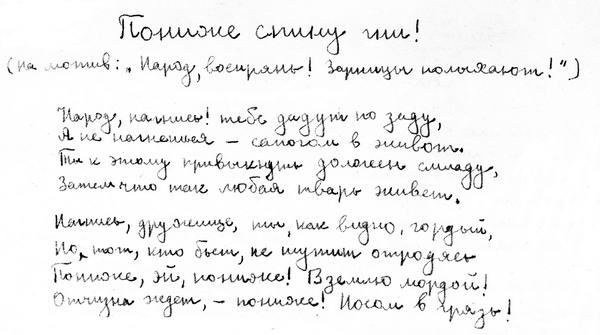 Пониже спину гни!
(на мотив: „Народ, воспрянь! Зарницы полыхают!")
Народ, нагнись! тебе дадут по заду,
А не нагнешься – сапогом в живот.
Ты к этому привыкнуть должен смладу,
Затем что так любая тварь живет.
Нагнись, дружище, ты, как видно, гордый,
Но, тот, кто бьет, не шутит отродясь
Пониже, эй, пониже! В землю мордой!
Отчизна ждет, – пониже! Носом в грязь!